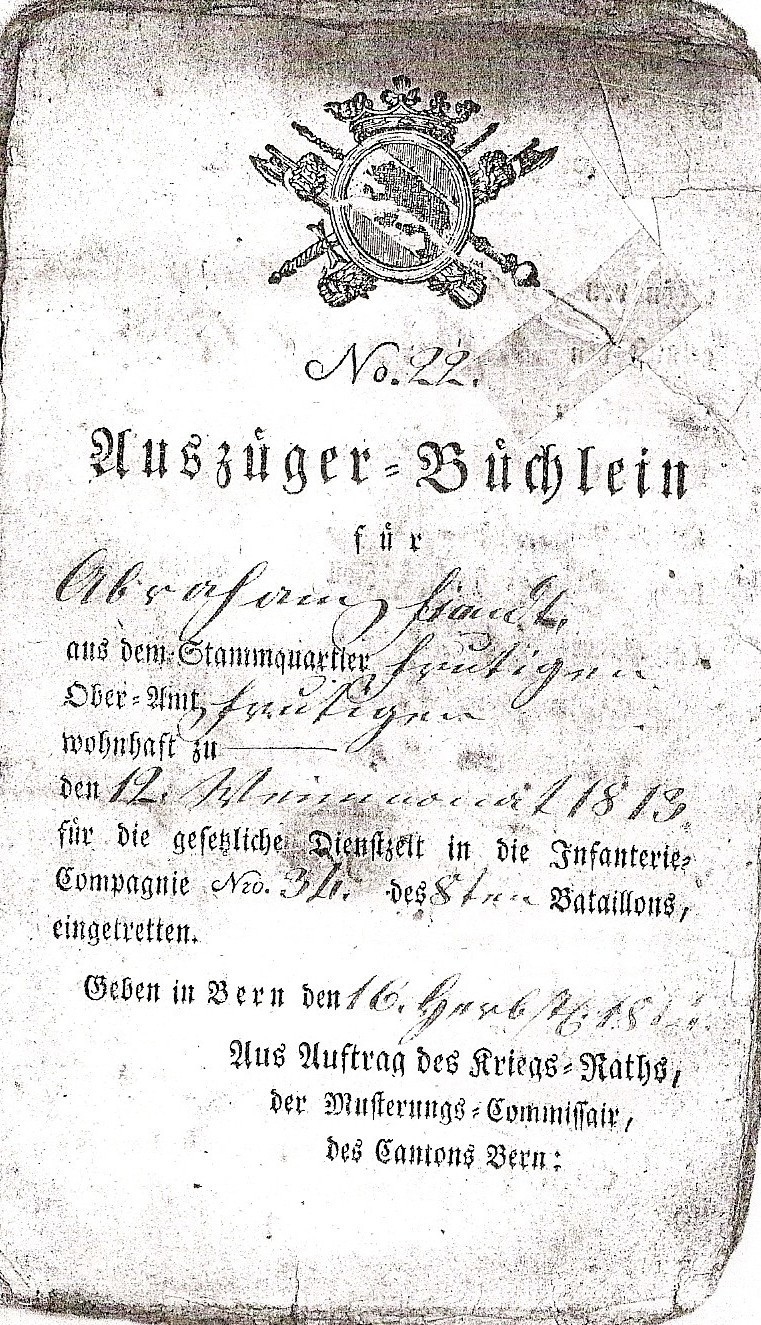 No. 22.
Auszüger-Büchlein
für
Abraham
aus dem Stammquartier Frutigen
Ober-Amt Frutigen
wohnhaft zu ———
den 12. Weinmonat 1813
für die gesetzliche Dienstzeit in die Infanterie-
Compagnie Nro. des 8ten Bataillons,
eingetretten.
Geben in Bern den 16. Herbstm.
Aus Auftrag des Kriegs-Raths,
der Musterungs-Commissair,
des Cantons Bern: